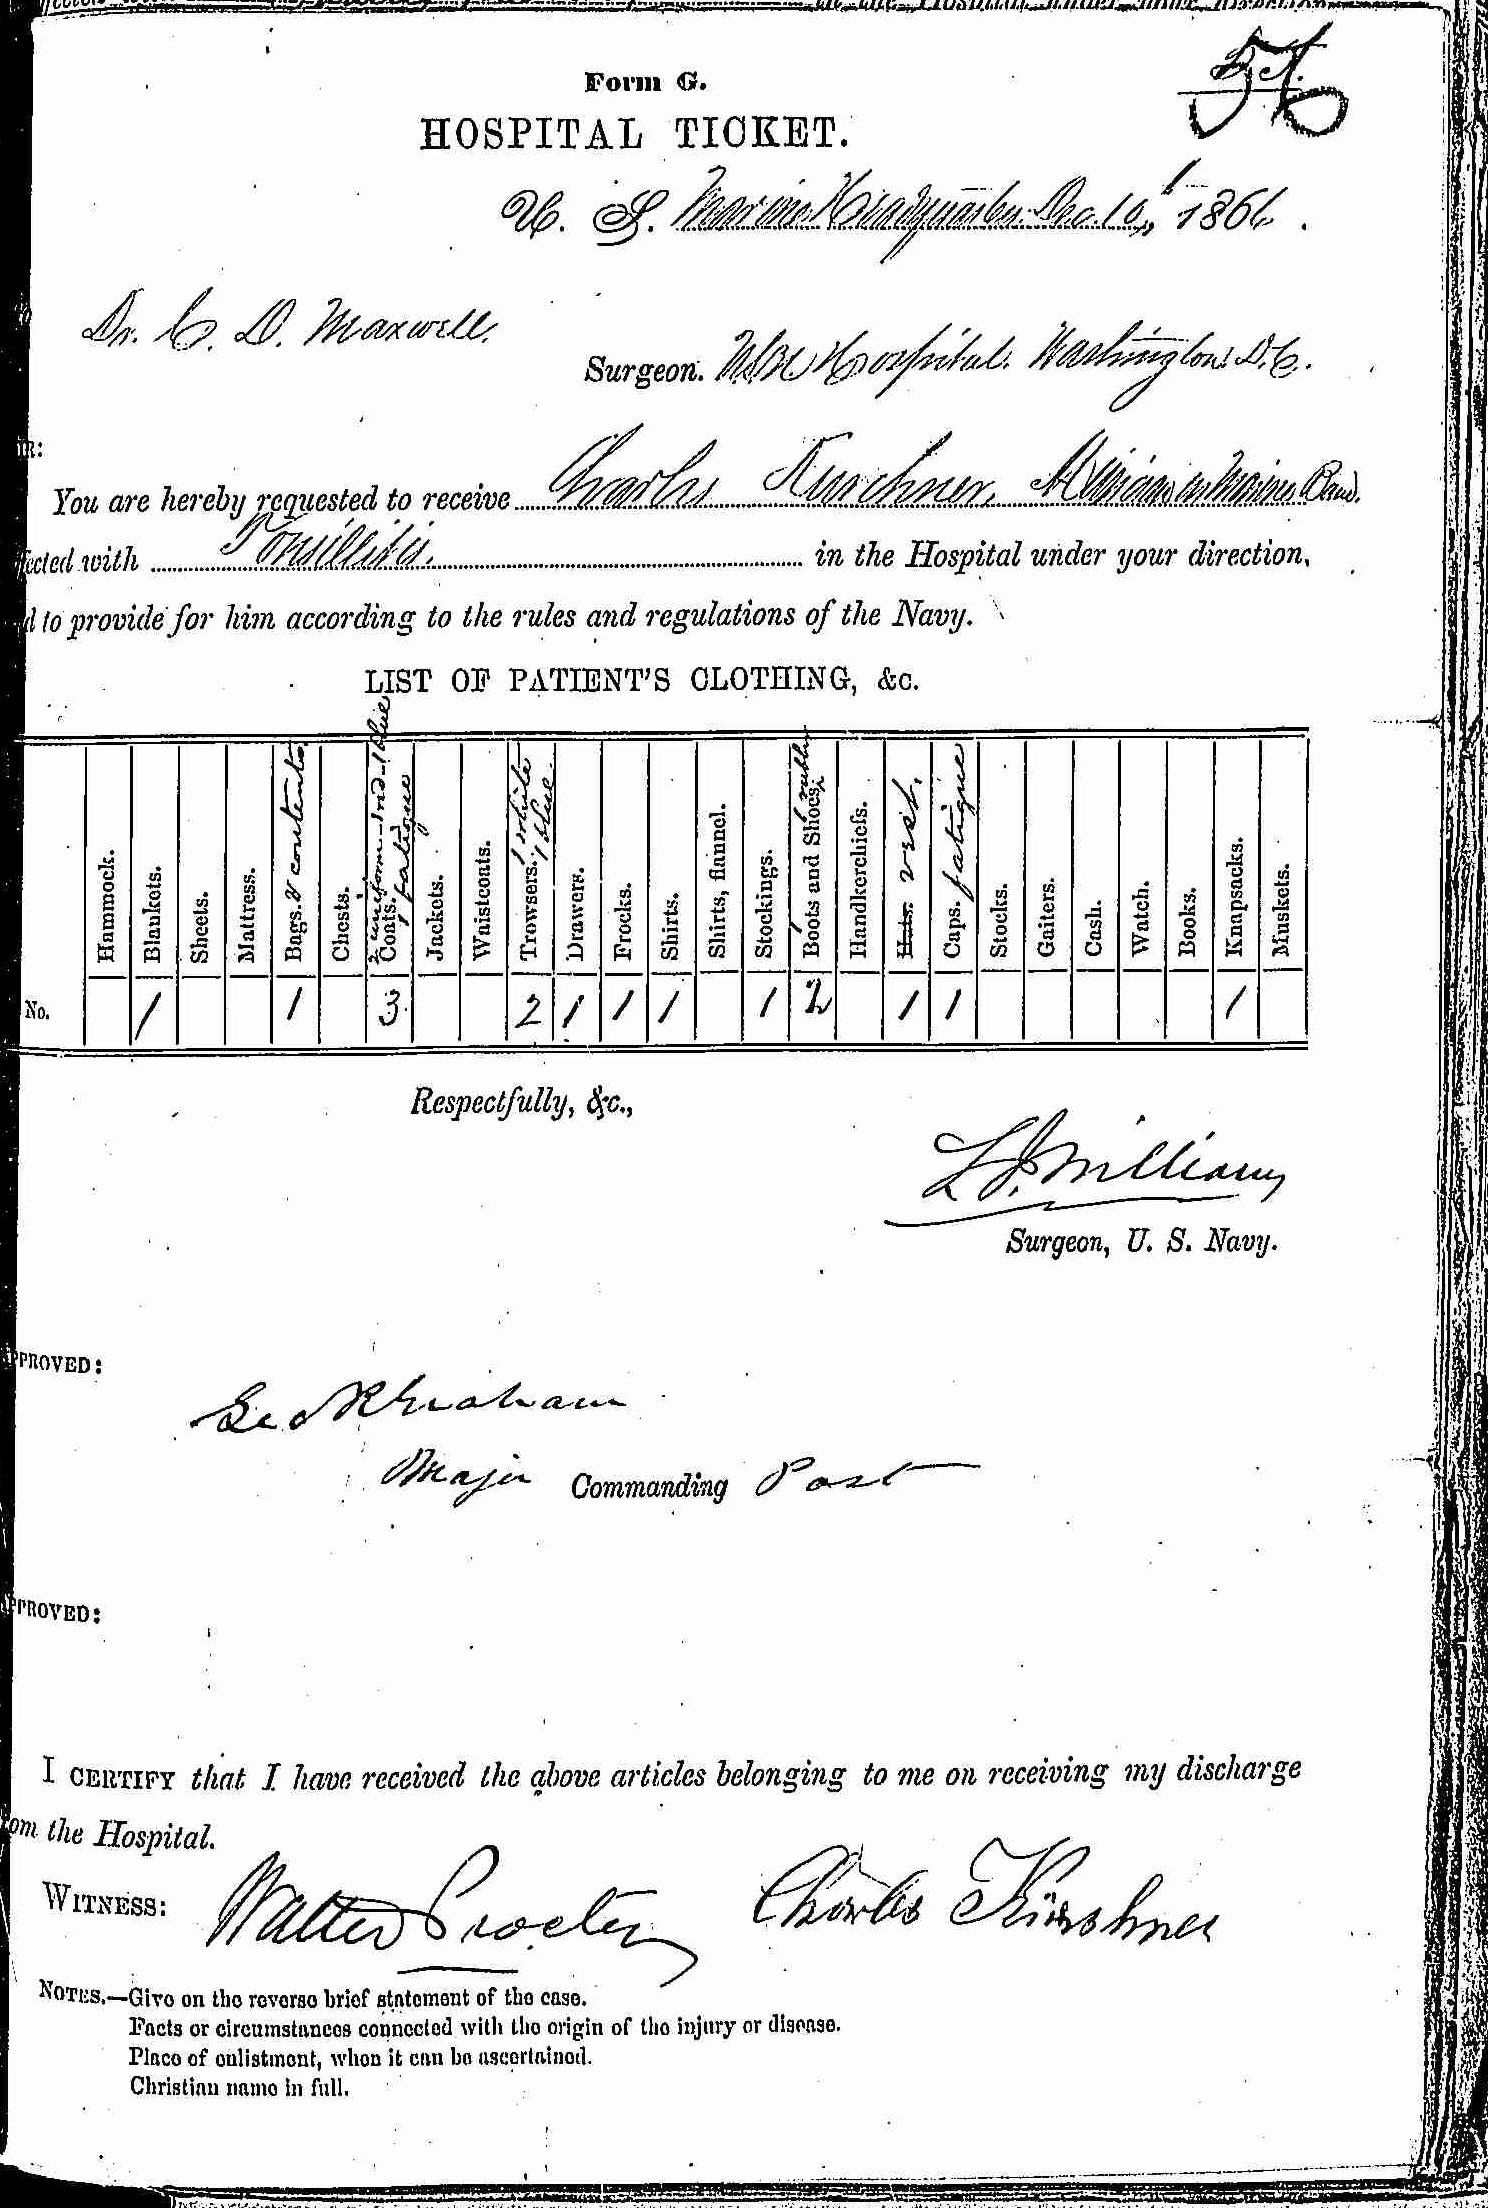 Form G.
HOSPITAL TICKET.
U. S. Marine Headquarters Dec. 10, 1866.
Dr. C. D. Maxwell.
Surgeon. Hospital. Washington D.C.
You are hereby requested to receive Charles Kirchner, Musician in Marine Band.
with Tonsillitis. in the Hospital under your direction,
to provide for him according to the rules and regulations of the Navy.
LIST OF PATIENT'S CLOTHING, &c.
Hammock.
Blankets.
Sheets.
Mattress.
Bags. & contents
Chests.
2 uniform - 1 red - 1 blue
Coats. 1 fatigue
Jackets.
Waistcoats.
Trowsers. 1 white 1 blue.
Drawers.
Frocks.
Shirts.
Shirts, flannel.
Stockings.
Boots and Shoes.
Handkerchiefs.
Hats. vest.
Caps. fatigue
Stocks.
Gaiters.
Cash.
Watch.
Books.
Knapsacks.
Muskets.
No. 1 1 3 2 1 1 1 1 2 1 1 1
Respectfully, &c.,
L. J. Williams
Surgeon, U. S. Navy.
APPROVED:
Geo R Graham
Major Commanding Post
APPROVED:
I CERTIFY that I have received the above articles belonging to me on receiving my discharge
the Hospital.
WITNESS: Walter Procter Charles Kirschner
NOTES.—Give on the reverse brief statement of the case.
Facts or circumstances connected with the origin of the injury or disease.
Place of enlistment, when it can be ascertained.
Christian name in full.